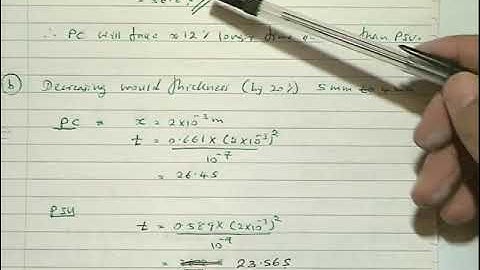 ∴ PC will take ≈ 12% longer time than PSU.
(b) Decreasing mould thickness (by 20%) 5mm to 4mm
PC = x = 2x10⁻³ m
t = 0.661 x (2x10⁻³)²
10⁻⁷
= 26.4s
PSU
t = 0.589 x (2x10⁻³)²
10⁻⁷
= 23.56s